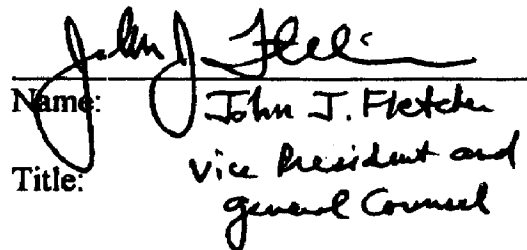 John J. Fle
Name: John J. Fletcher
Title: Vice President and
general Counsel